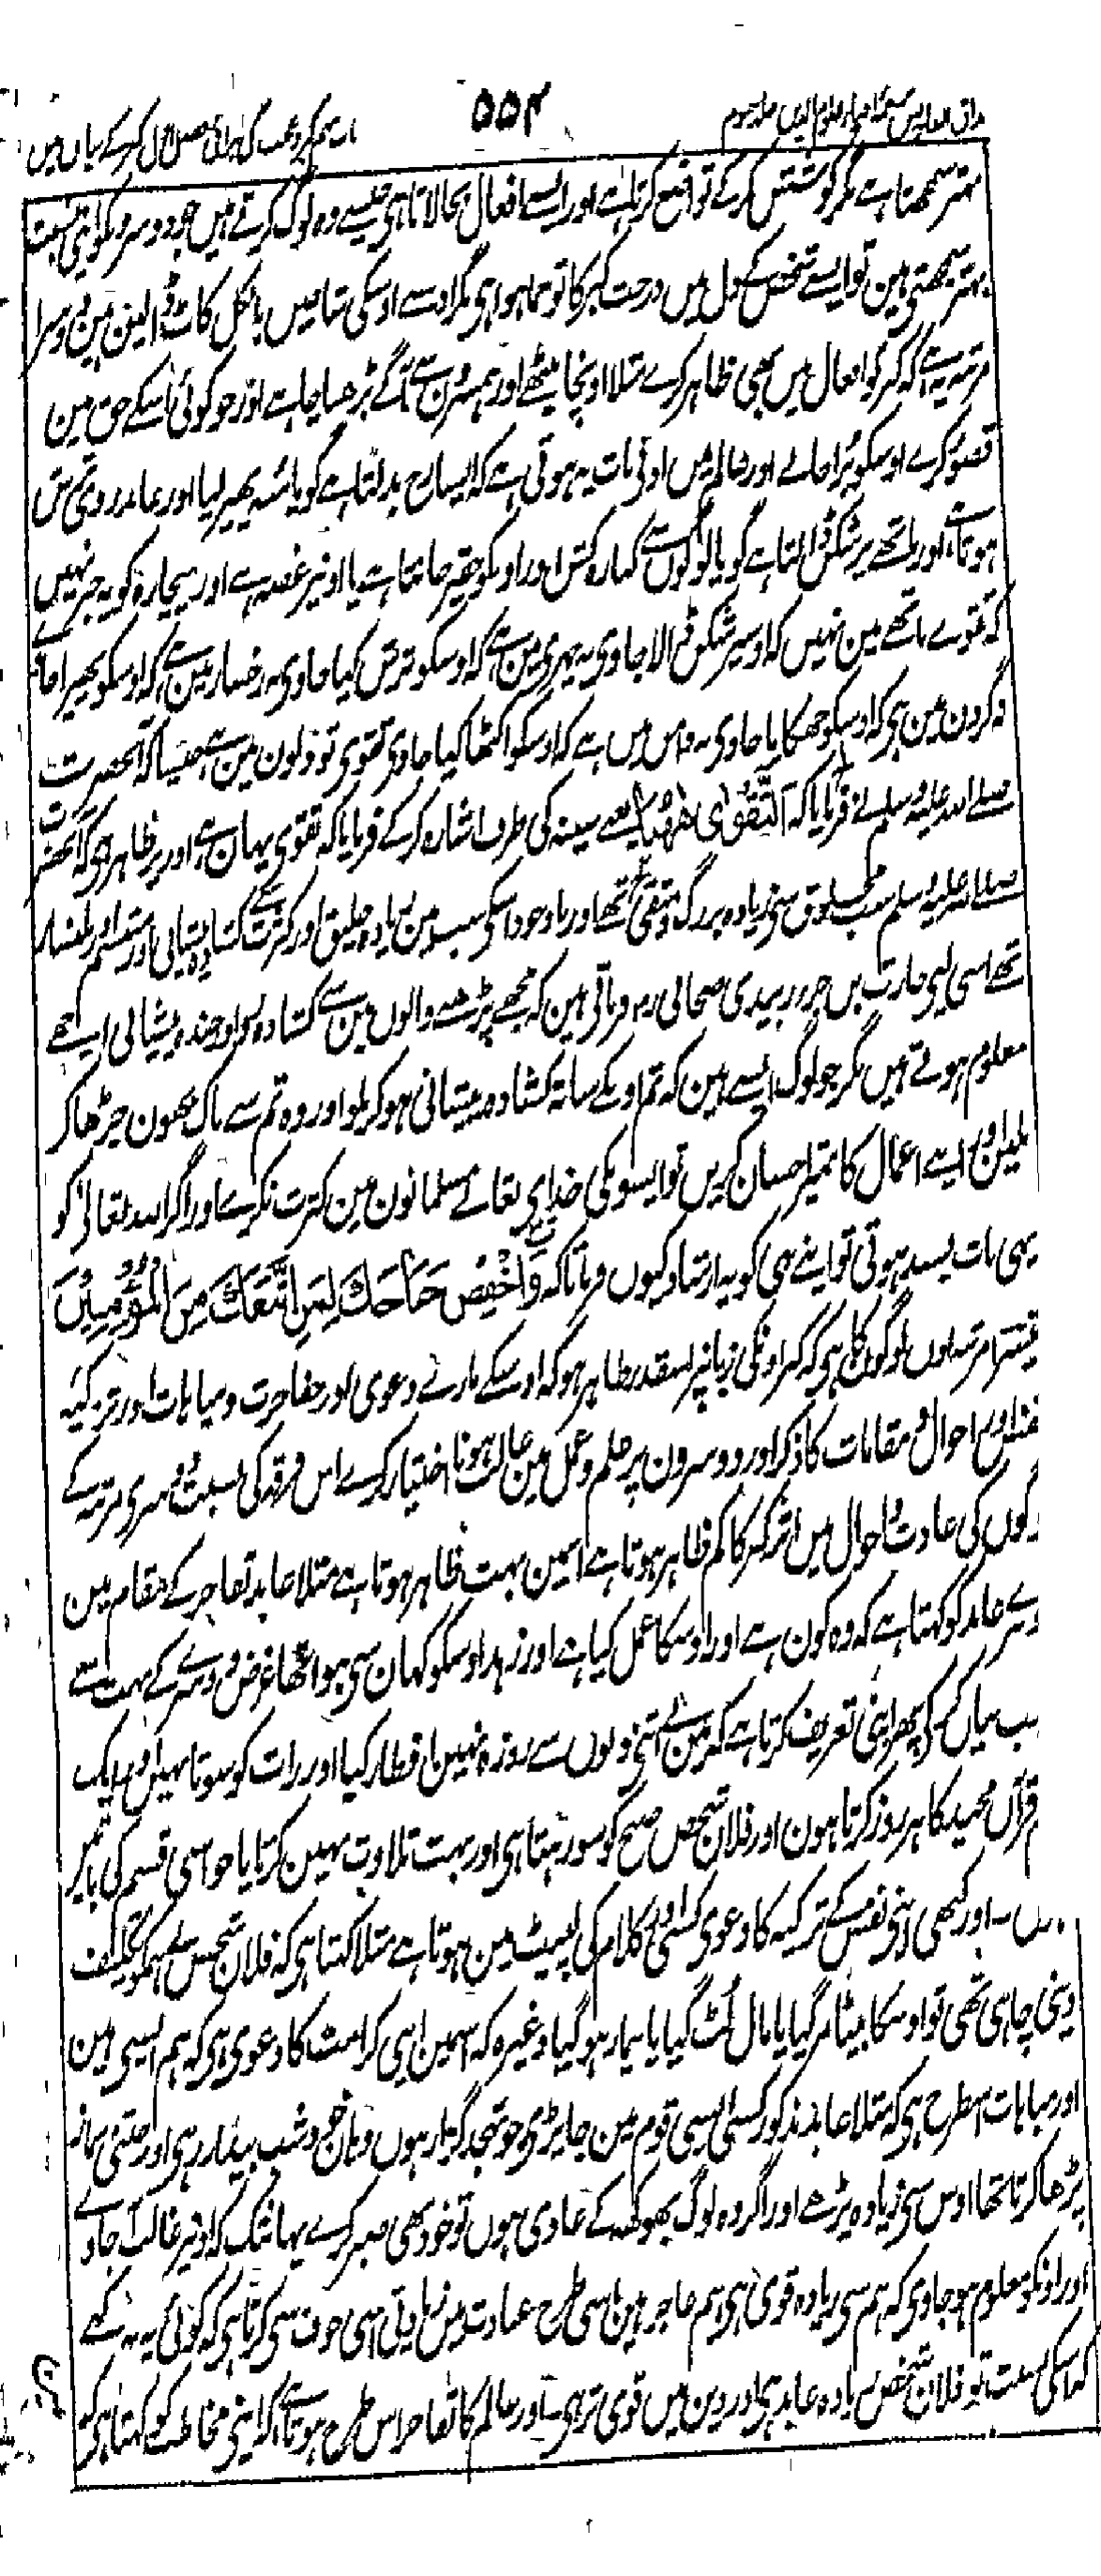 ۵۵۴
بہتر سمجھتا ہے مگر کوشش کر کے تواضع کرتا ہے اور ایسے افعال بجا لاتا ہی جیسے وہ لوگ کرتے ہیں جو دوسرونکو اپنی نسبت
بہتر سمجھتی ہین تو ایسے شخص کے دل میں درخت کبر کا تو جما ہوا ہی مگر اوسنے اوسکی شاخیں بالکل کاٹ ڈالین ہین دوسرا
مرتبہ یہ ہے کہ کبر کو افعال میں بھی ظاہر کرے مثلا اونچا بیٹھے اور ہمسرون سے آگے بڑھا جاے اور جو کوئی اسکے حق مین
قصور کرے اوسکو برا جانے اور عالم میں ادنی بات یہ ہوتی ہے کہ ایسا رخ بدلتا ہے گویا منہ پھیر لیا اور عابد روتی ش
ہوتا ہے اور ماتھے پر شکن ڈالتا ہے گویا لوگوں سے کنارہ کش اور اونکو حقیر جانتا ہے یا اونپر غصہ ہے اور بیچارہ کو یہ خبر نہیں
کہ تقوے ماتھے مین نہیں کہ اوسپر شکن ڈالا جاوی نہ چہری مین ہے کہ اوسکو ترش کیا جاوی نہ رخسار مین ہے کہ اوسکو پھیرا جاے
نہ گردن مین ہی کہ اوسکو جھکایا جاوی نہ دامن میں ہے کہ اوسکو اکٹھا کیا جاوی تقوی تو دلون مین ہے جیسا کہ آنحضرت
صلے اللہ علیہ وسلم نے فرمایا کہ اَلتَّقْوٰی ھٰھُنَا یعنے سینہ کی طرف اشارہ کر کے فرمایا کہ تقوی یہان ہے اور یہ ظاہر ہی کہ آنحضرت
صلے اللہ علیہ وسلم سب مخلوق سی زیادہ بزرگ و متقی تھے اور باوجود اسکی سب مین زیادہ خلیق اور کثرت سے کشادہ پیشانی اور تبسم اور ملنسار
تھے اسی لیے حارث بن جزر زبیدی صحابی رض فرماتی ہین کہ مجھے پڑھنے والوں مین سے کشادہ رو اور خندہ پیشانی اچھے
معلوم ہوتے ہیں مگر جو لوگ ایسے ہین کہ تم اونکے ساتھ کشادہ پیشانی ہو کر ملو اور وہ تم سے ناک بھون چڑھا کر
ملین اور اپنے اعمال کا تمپر احسان کریں تو ایسونکی خدای تعالے مسلمانون مین کثرت نکرے اور اگر اللہ تعالی کو
یہی بات پسند ہوتی تو اپنے نبی کو یہ ارشاد کیوں فرماتا کہ وَاخْفِضْ جَنَاحَكَ لِمَنِ اتَّبَعَكَ مِنَ الْمُؤْمِنِيْنَ
تیسرا مرتبہ اون لوگون کا ہی کہ کبر اونکی زبانپر اسقدر ظاہر ہو کہ اوسکے مارے دعوی اور مفاخرت و مباہات اور تزکیہ
نفس اور احوال و مقامات کا ذکر اور دوسرون پر علم و عمل مین غالب ہونا اختیار کرے اس فرقہ کی نسبت دوسری مرتبہ کے
لوگوں کی عادت و احوال میں اثر کبر کا کم ظاہر ہوتا ہے اسمین بہت ظاہر ہوتا ہے مثلا عابد تفاخر کے مقام مین
دوسرے عابد کو کہتا ہے کہ وہ کون ہے اور اوسکا عمل کیا ہے اور زہد اوسکو کہان سی ہوا تھا غرض دوسرے کے بہت سے
عیب بیان کر کے پھر اپنی تعریف کرتا ہے کہ مین نے اتنی دنوں سے روزہ نہین افطار کیا اور رات کو سوتا نہین اور ایک
ختم قرآن مجید کا ہر روز کرتا ہون اور فلان شخص صبح کو سو رہتا ہی اور بہت تلاوت نہین کرتا یا جو اسی قسم کی باتیں
ہوں اور کبھی اپنی نفس کے تزکیہ کا دعوی کسی اور کلام کی لپیٹ مین ہوتا ہے مثلا کہتا ہی کہ فلان شخص نے ہمکو تکلیف
دینی چاہی تھی تو اوسکا بیٹا مر گیا یا مال لُٹ گیا یا بیمار ہو گیا وغیرہ کہ اسمین اپنی کرامت کا دعوی ہی کہ ہم ایسی ہین
اور مباہات اسطرح ہی کہ مثلا عابد مذکور کسی ایسی قوم مین جا پڑی جو تہجد گزار ہوں وہان خود شب بیدار رہی اور جتنی نماز
پڑھا کرتا تھا اوس سی زیادہ پڑھے اور اگر وہ لوگ بھوکھہ کے عادی ہوں تو خود بھی صبر کرے یہانتک کہ اونپر غالب آ جاوے
اور اونکو معلوم ہو جاوی کہ ہم سی زیادہ قوی ہی ہم عاجز ہین اسی طرح عبادت مین زیادتی اسی خوف سی کرتا ہی کہ کوئی یہ نہ کہے
کہ اسکی نسبت تو فلان شخص زیادہ عابد ہی اور دین میں قوی تر ہی اور عالم کا تفاخر اس طرح ہوتا ہے کہ اپنی مخاطب کو کہتا ہی کہ